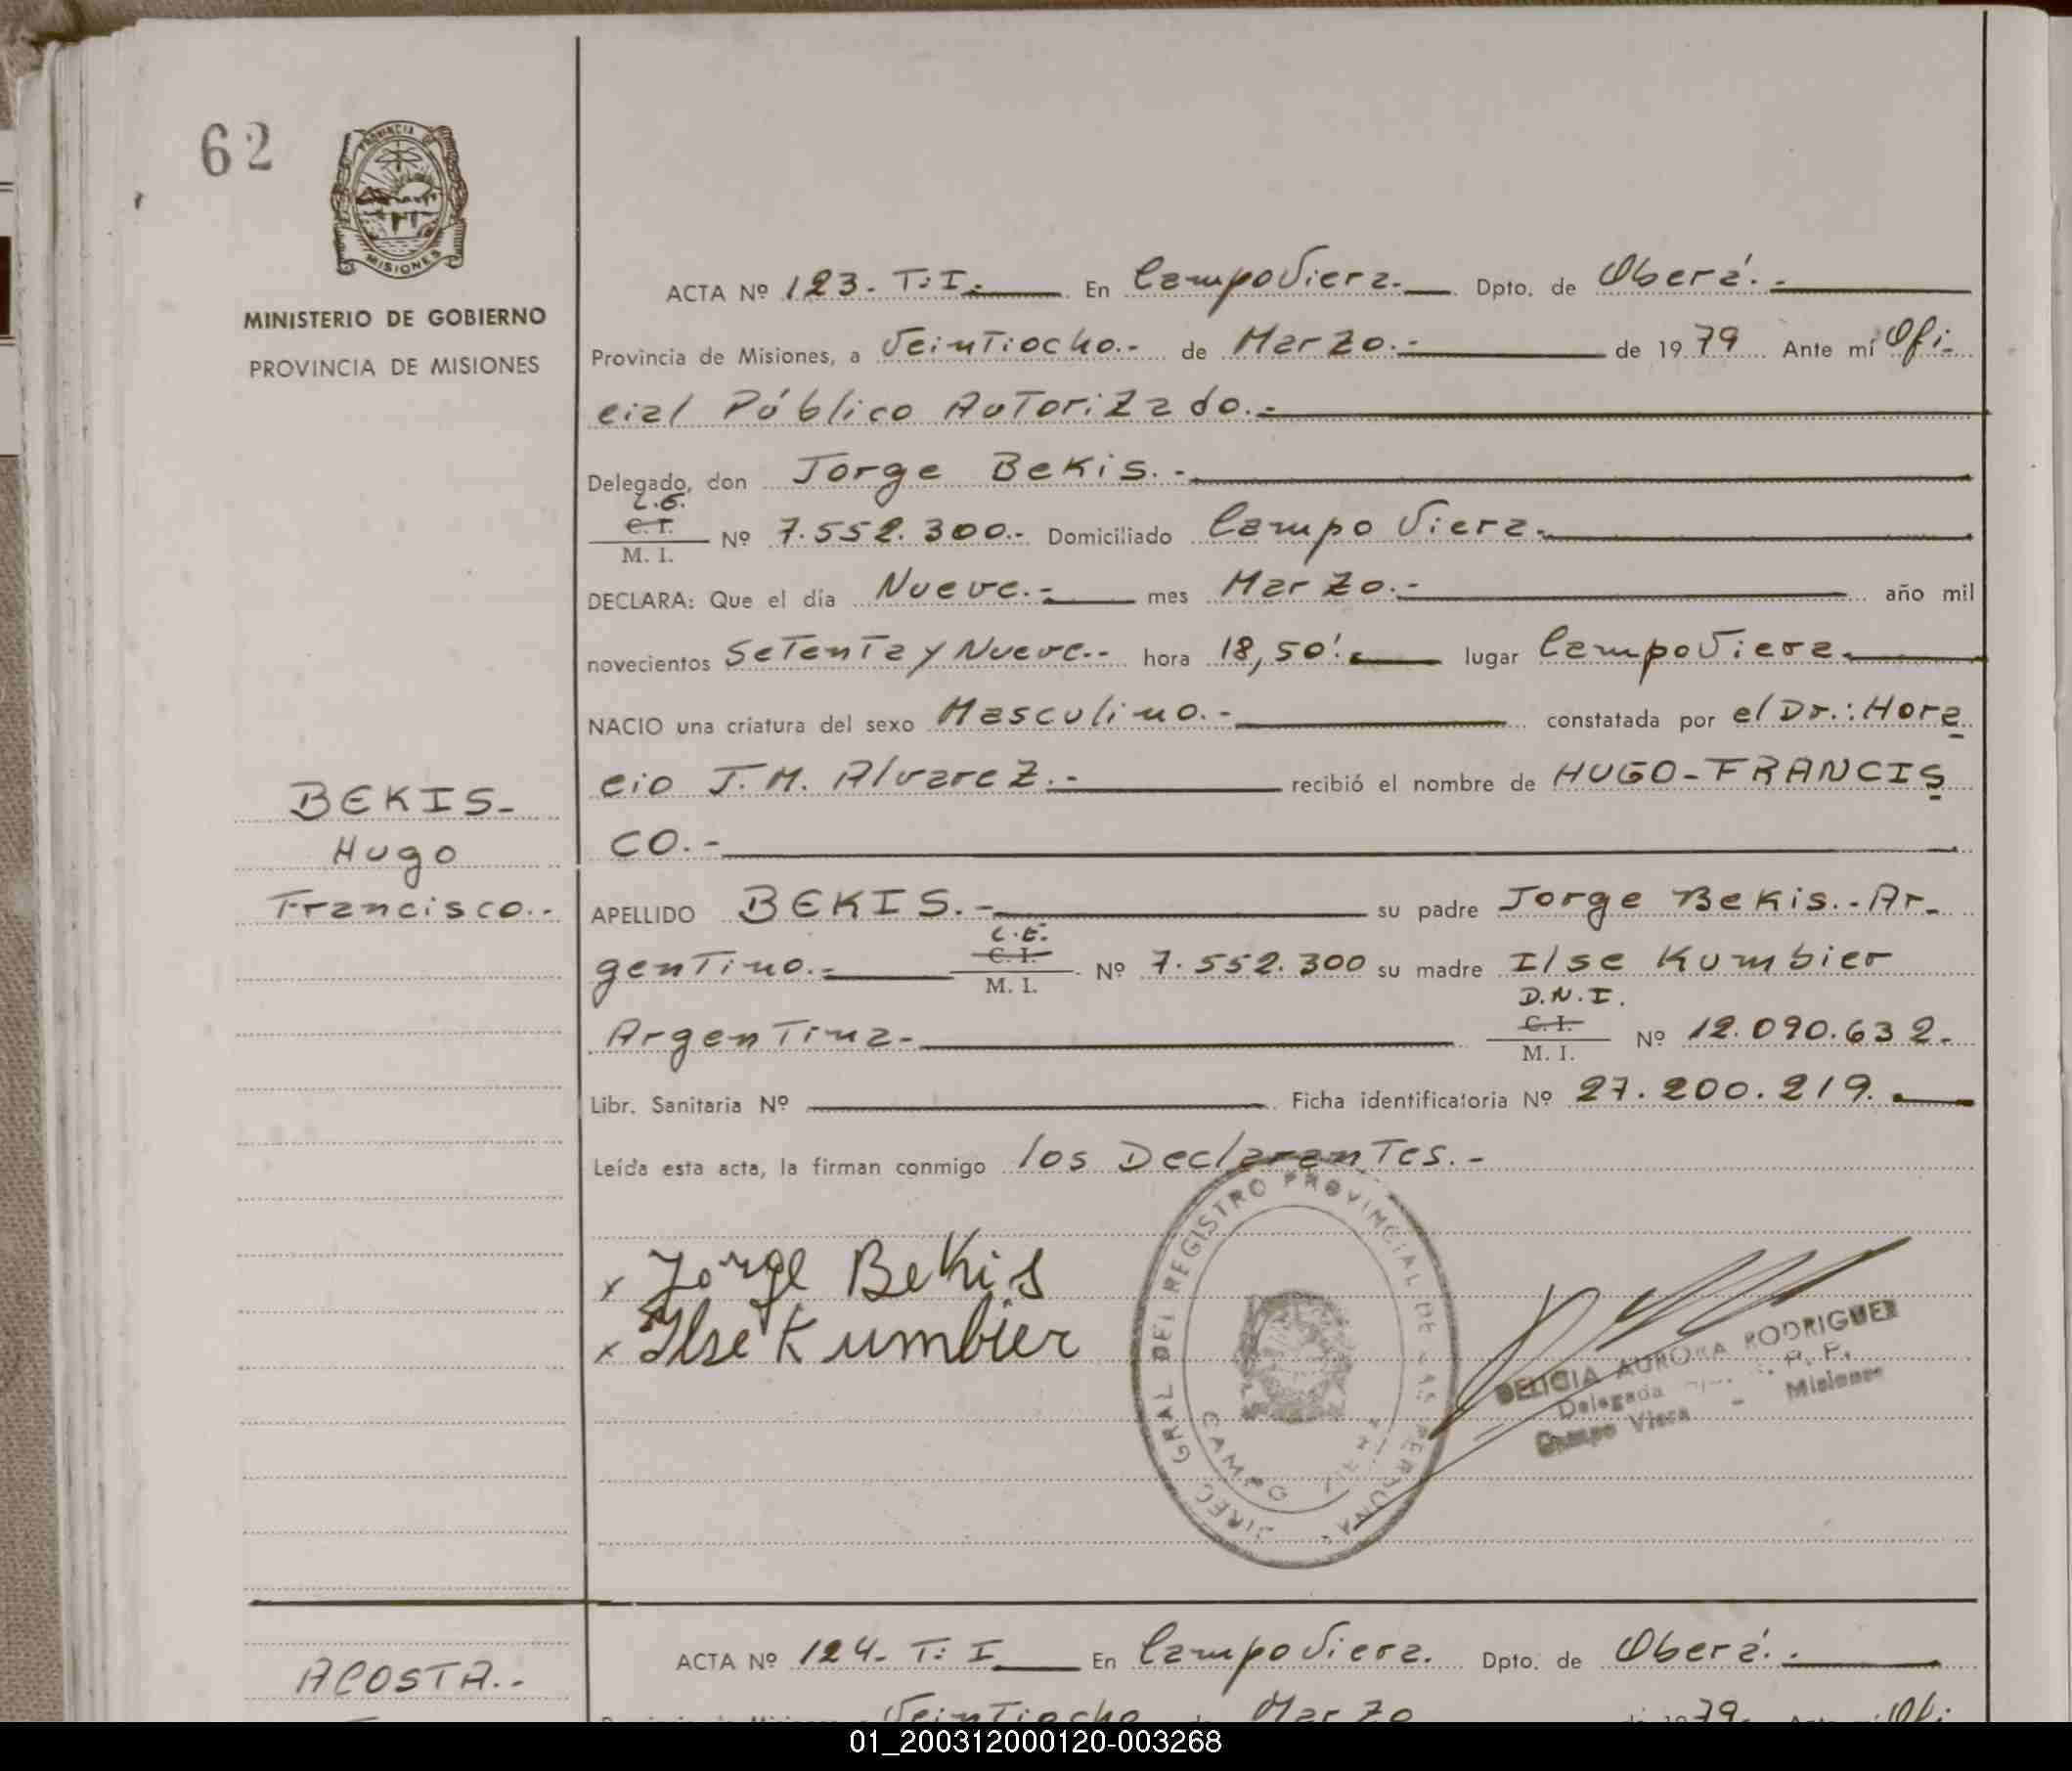 62
PROVINCIA DE
MISIONES
MINISTERIO DE GOBIERNO
PROVINCIA DE MISIONES
BEKIS-
Hugo
Francisco.-
ACTA Nº 123. T: I.- En Campo Viera.- Dpto. de Oberá.-
Provincia de Misiones, a Veintiocho.- de Marzo.- de 1979 Ante mí Ofi-
cial Público Autorizado.-
Delegado, don Jorge Bekis.-
L.E.
C. I.
M. I. Nº 7.552.300.- Domiciliado Campo Viera.-
DECLARA: Que el día Nueve.- mes Marzo.- año mil
novecientos Setenta y Nueve.- hora 18,50'.- lugar Campo Viera.
NACIO una criatura del sexo Masculino.- constatada por el Dr.: Hora
cio J. M. Alvarez.- recibió el nombre de HUGO-FRANCIS
CO.-
APELLIDO BEKIS.- su padre Jorge Bekis.-Ar-
L.E.
gentino.- C. I. M. I. Nº 7.552.300 su madre Ilse Kumbier
D.N.I.
Argentina- C. I. M. I. Nº 12.090.632.
Libr. Sanitaria Nº Ficha identificatoria Nº 27.200.219.
Leída esta acta, la firman conmigo los Declarantes.-
x Jorge Bekis
x Ilse Kumbier
DIREC. GRAL DEL REGISTRO PROVINCIAL DE LAS PERSONAS
CAMPO VIERA
DELICIA AURORA RODRIGUEZ
Delegada R. P. P.
Campo Viera - Misiones
ACOSTA.-
ACTA Nº 124. T: I En Campo Viera. Dpto. de Oberá.-
Provincia de Misiones, a Veintiocho de Marzo de 1979. Ante mí Ofi
01_200312000120-003268